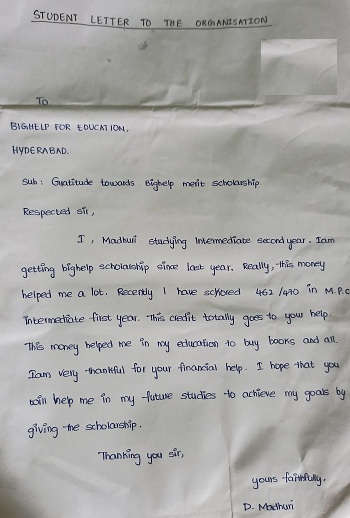 STUDENT LETTER TO THE ORGANISATION
To
BIGHELP FOR EDUCATION,
HYDERABAD.
Sub: Gratitude towards Bighelp merit scholarship
Respected Sir,
I, Madhuri studying Intermediate second year. Iam
getting bighelp scholarship since last year. Really, this money
helped me a lot. Recently I have schored 462/470 in M.P.C
intermediate first year. This credit totally goes to your help.
This money helped me in my education to buy books and all.
Iam very thankful for your financial help. I hope that you
will help me in my future studies to achieve my goals by
giving the scholarship.
Thanking you sir,
yours faithfully,
D. Madhuri